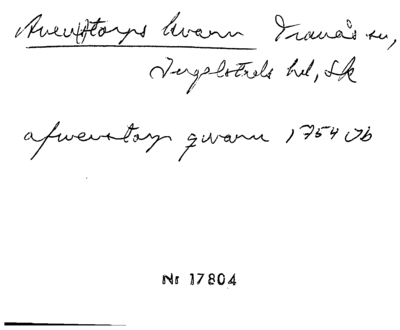 Avenstorps kvarn Tranås sn,
Ingelstads hd, Sk
afwenstorp qwarn 1754 Jb
Nr 17804